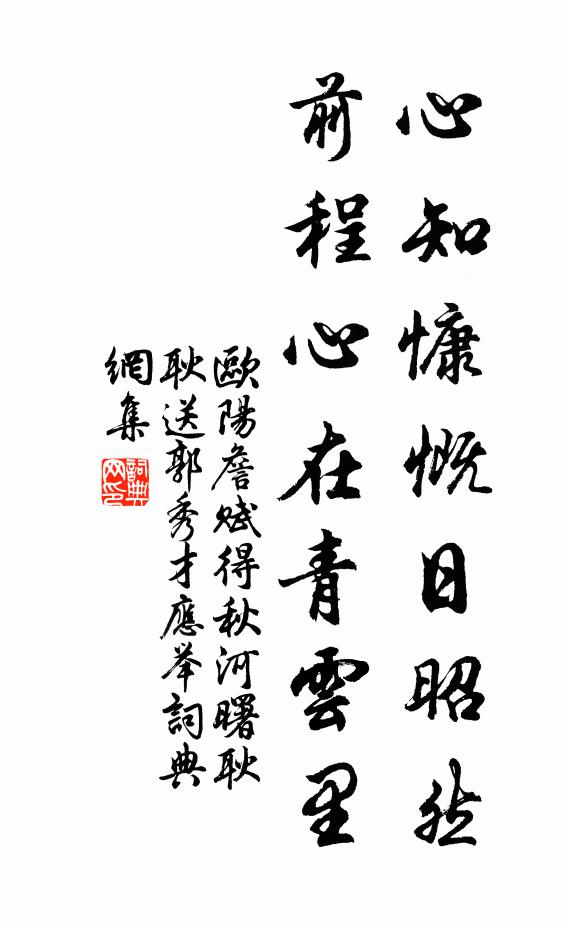 心知慷慨日昭然
前程心在青雲里
歐陽詹賦得秋河曙耿
耿送郭秀才應举詞典
網集
詞典网印